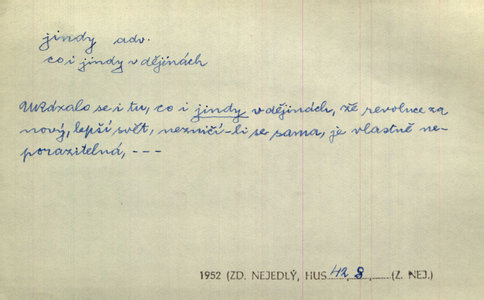 jindy adv.
co i jindy v dějinách
Ukázalo se i tu, co i jindy v dějinách, že revoluce za
nový, lepší svět, nezničí-li se sama, je vlastně ne-
porazitelná, ---
1952 (ZD. NEJEDLÝ, HUS 42, 8, (Z. NEJ.)